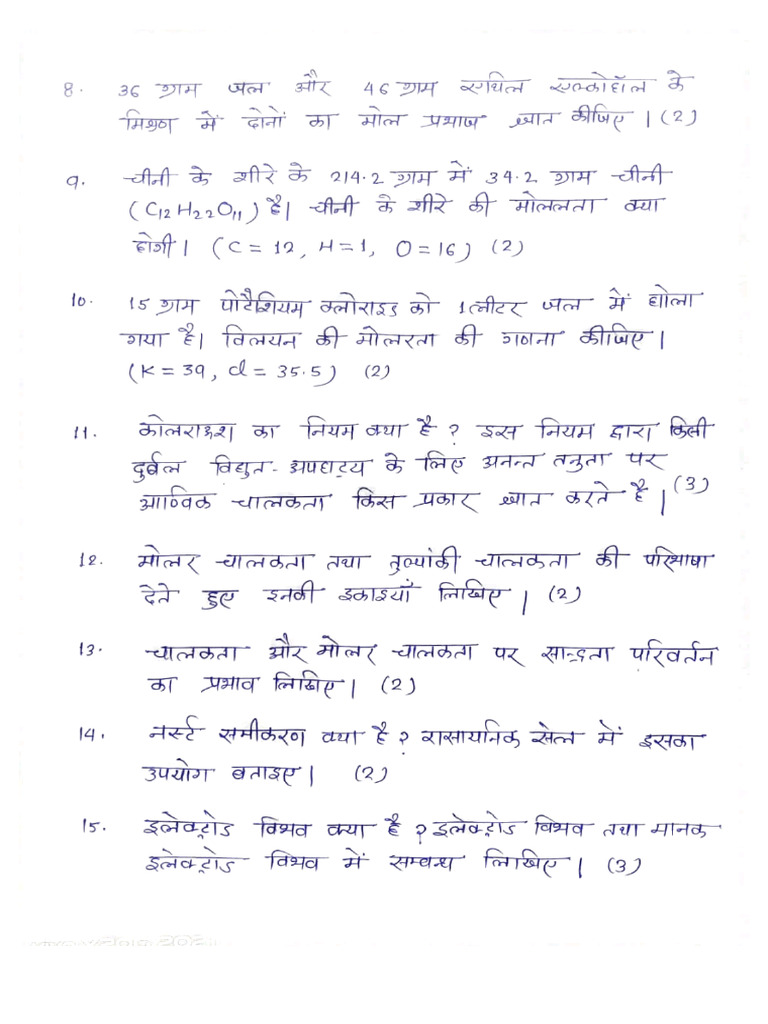 8. 36 ग्राम जल और 46 ग्राम एथिल एल्कोहॉल के
मिश्रण में दोनों का मोल प्रभाज ज्ञात कीजिए। (2)
9. चीनी के शीरे के 214.2 ग्राम में 34.2 ग्राम चीनी
(C12H22O11) है। चीनी के शीरे की मोललता क्या
होगी। (C = 12, H = 1, O = 16) (2)
10. 15 ग्राम पोटैशियम क्लोराइड को 1 लीटर जल में घोला
गया है। विलयन की मोलरता की गणना कीजिए।
(K = 39, Cl = 35.5) (2)
11. कोलराऊश का नियम क्या है? इस नियम द्वारा किसी
दुर्बल विद्युत-अपघट्य के लिए अनन्त तनुता पर
आण्विक चालकता किस प्रकार ज्ञात करते है। (3)
12. मोलर चालकता तथा तुल्यांकी चालकता की परिभाषा
देते हुए इनकी इकाइयाँ लिखिए। (2)
13. चालकता और मोलर चालकता पर सान्द्रता परिवर्तन
का प्रभाव लिखिए। (2)
14. नर्न्स्ट समीकरण क्या है? रासायनिक सेल में इसका
उपयोग बताइए। (2)
15. इलेक्ट्रोड विभव क्या है? इलेक्ट्रोड विभव तथा मानक
इलेक्ट्रोड विभव में सम्बन्ध लिखिए। (3)